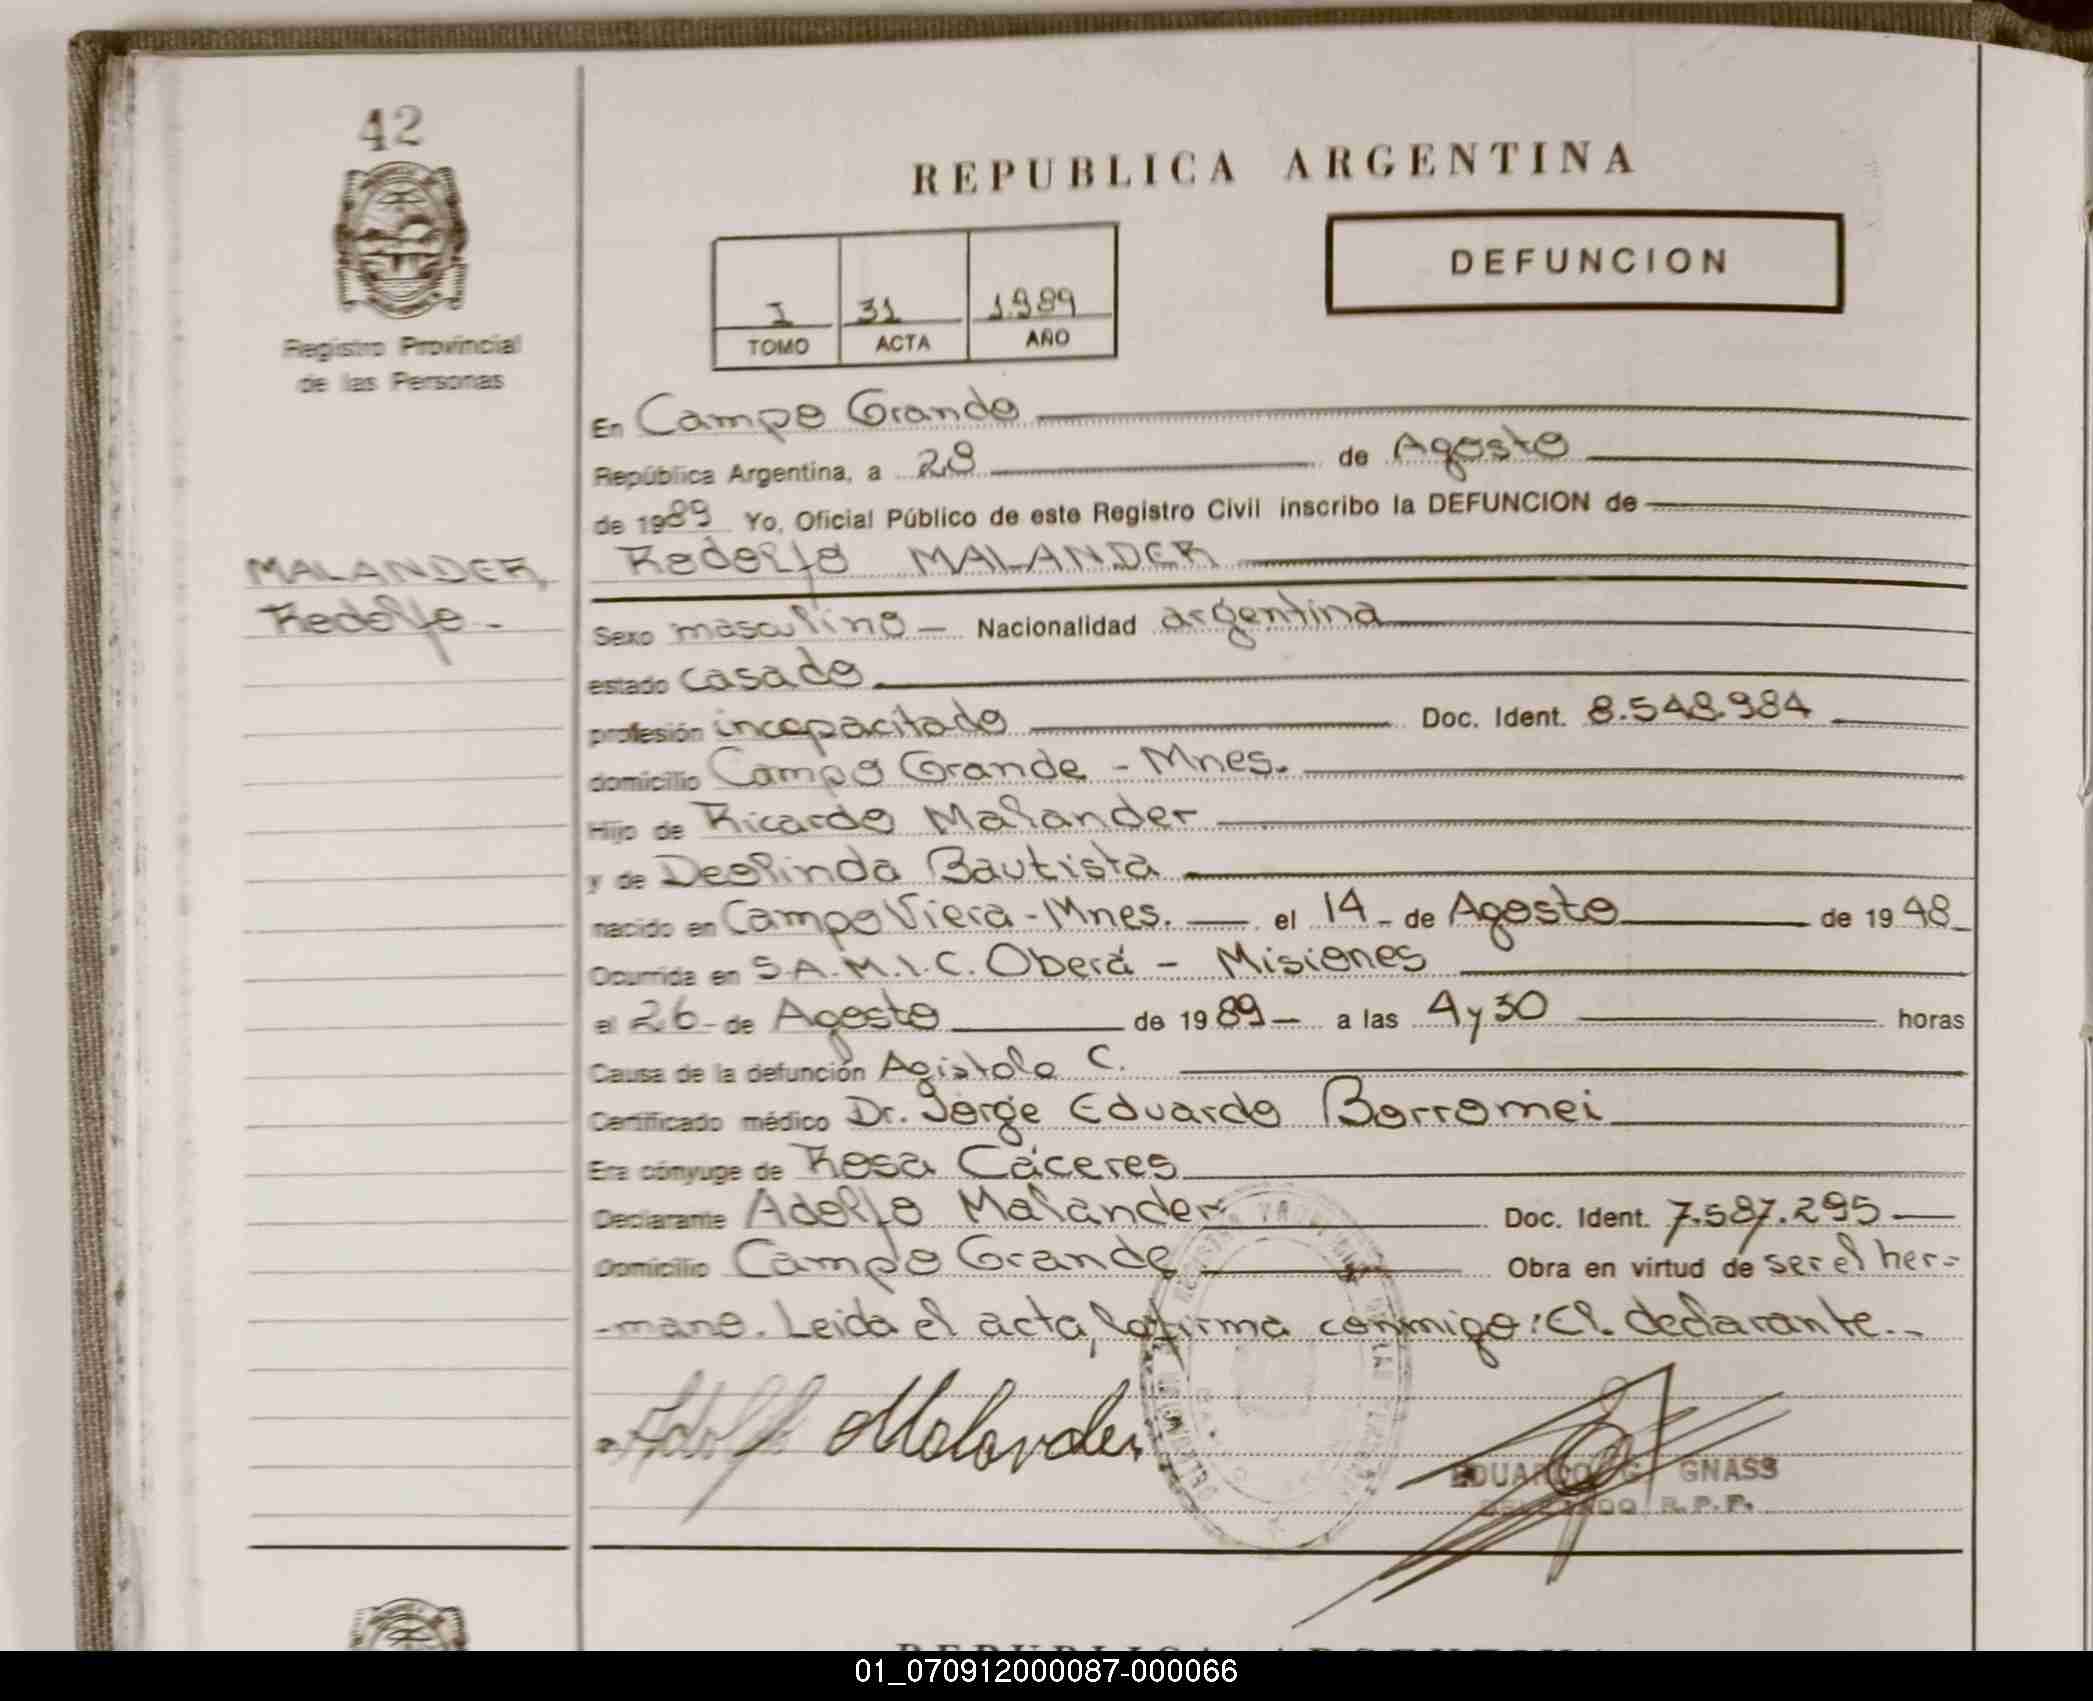 42
REPUBLICA ARGENTINA
DEFUNCION
I 31 1.989
TOMO ACTA AÑO
Registro Provincial
de las Personas
En Campo Grande
República Argentina, a 28 de Agosto
de 1989 Yo, Oficial Público de este Registro Civil inscribo la DEFUNCION de
MALANDER,
Rodolfo -
Rodolfo MALANDER
Sexo masculino - Nacionalidad argentina
estado casado
profesión incapacitado Doc. Ident. 8.548.984
domicilio Campo Grande - Mnes.
Hijo de Ricardo Malander
y de Deolinda Bautista
nacido en Campo Viera - Mnes. el 14 - de Agosto de 1948
Ocurrida en S.A.M.I.C. Oberá - Misiones
el 26 - de Agosto de 1989 - a las 4 y 30 horas
Causa de la defunción Agistolo C.
Certificado médico Dr. Jorge Eduardo Borromei
Era cónyuge de Rosa Cáceres
Declarante Adolfo Malander Doc. Ident. 7.587.295
Domicilio Campo Grande Obra en virtud de ser el her=
-mano. Leida el acta, la firma conmigo: El declarante.-
Adolfo Malander
EDUARDO G GNASS
DELEGADO R.P.P.
REPUBLICA ARGENTINA
01_070912000087-000066